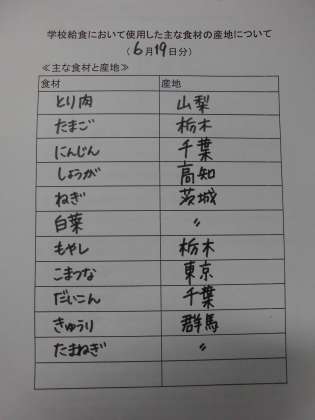 学校給食において使用した主な食材の産地について
(6月19日分)
≪主な食材と産地≫
食材 産地
とり肉 山梨
たまご 栃木
にんじん 千葉
しょうが 高知
ねぎ 茨城
白菜 〃
もやし 栃木
こまつな 東京
だいこん 千葉
きゅうり 群馬
たまねぎ 〃